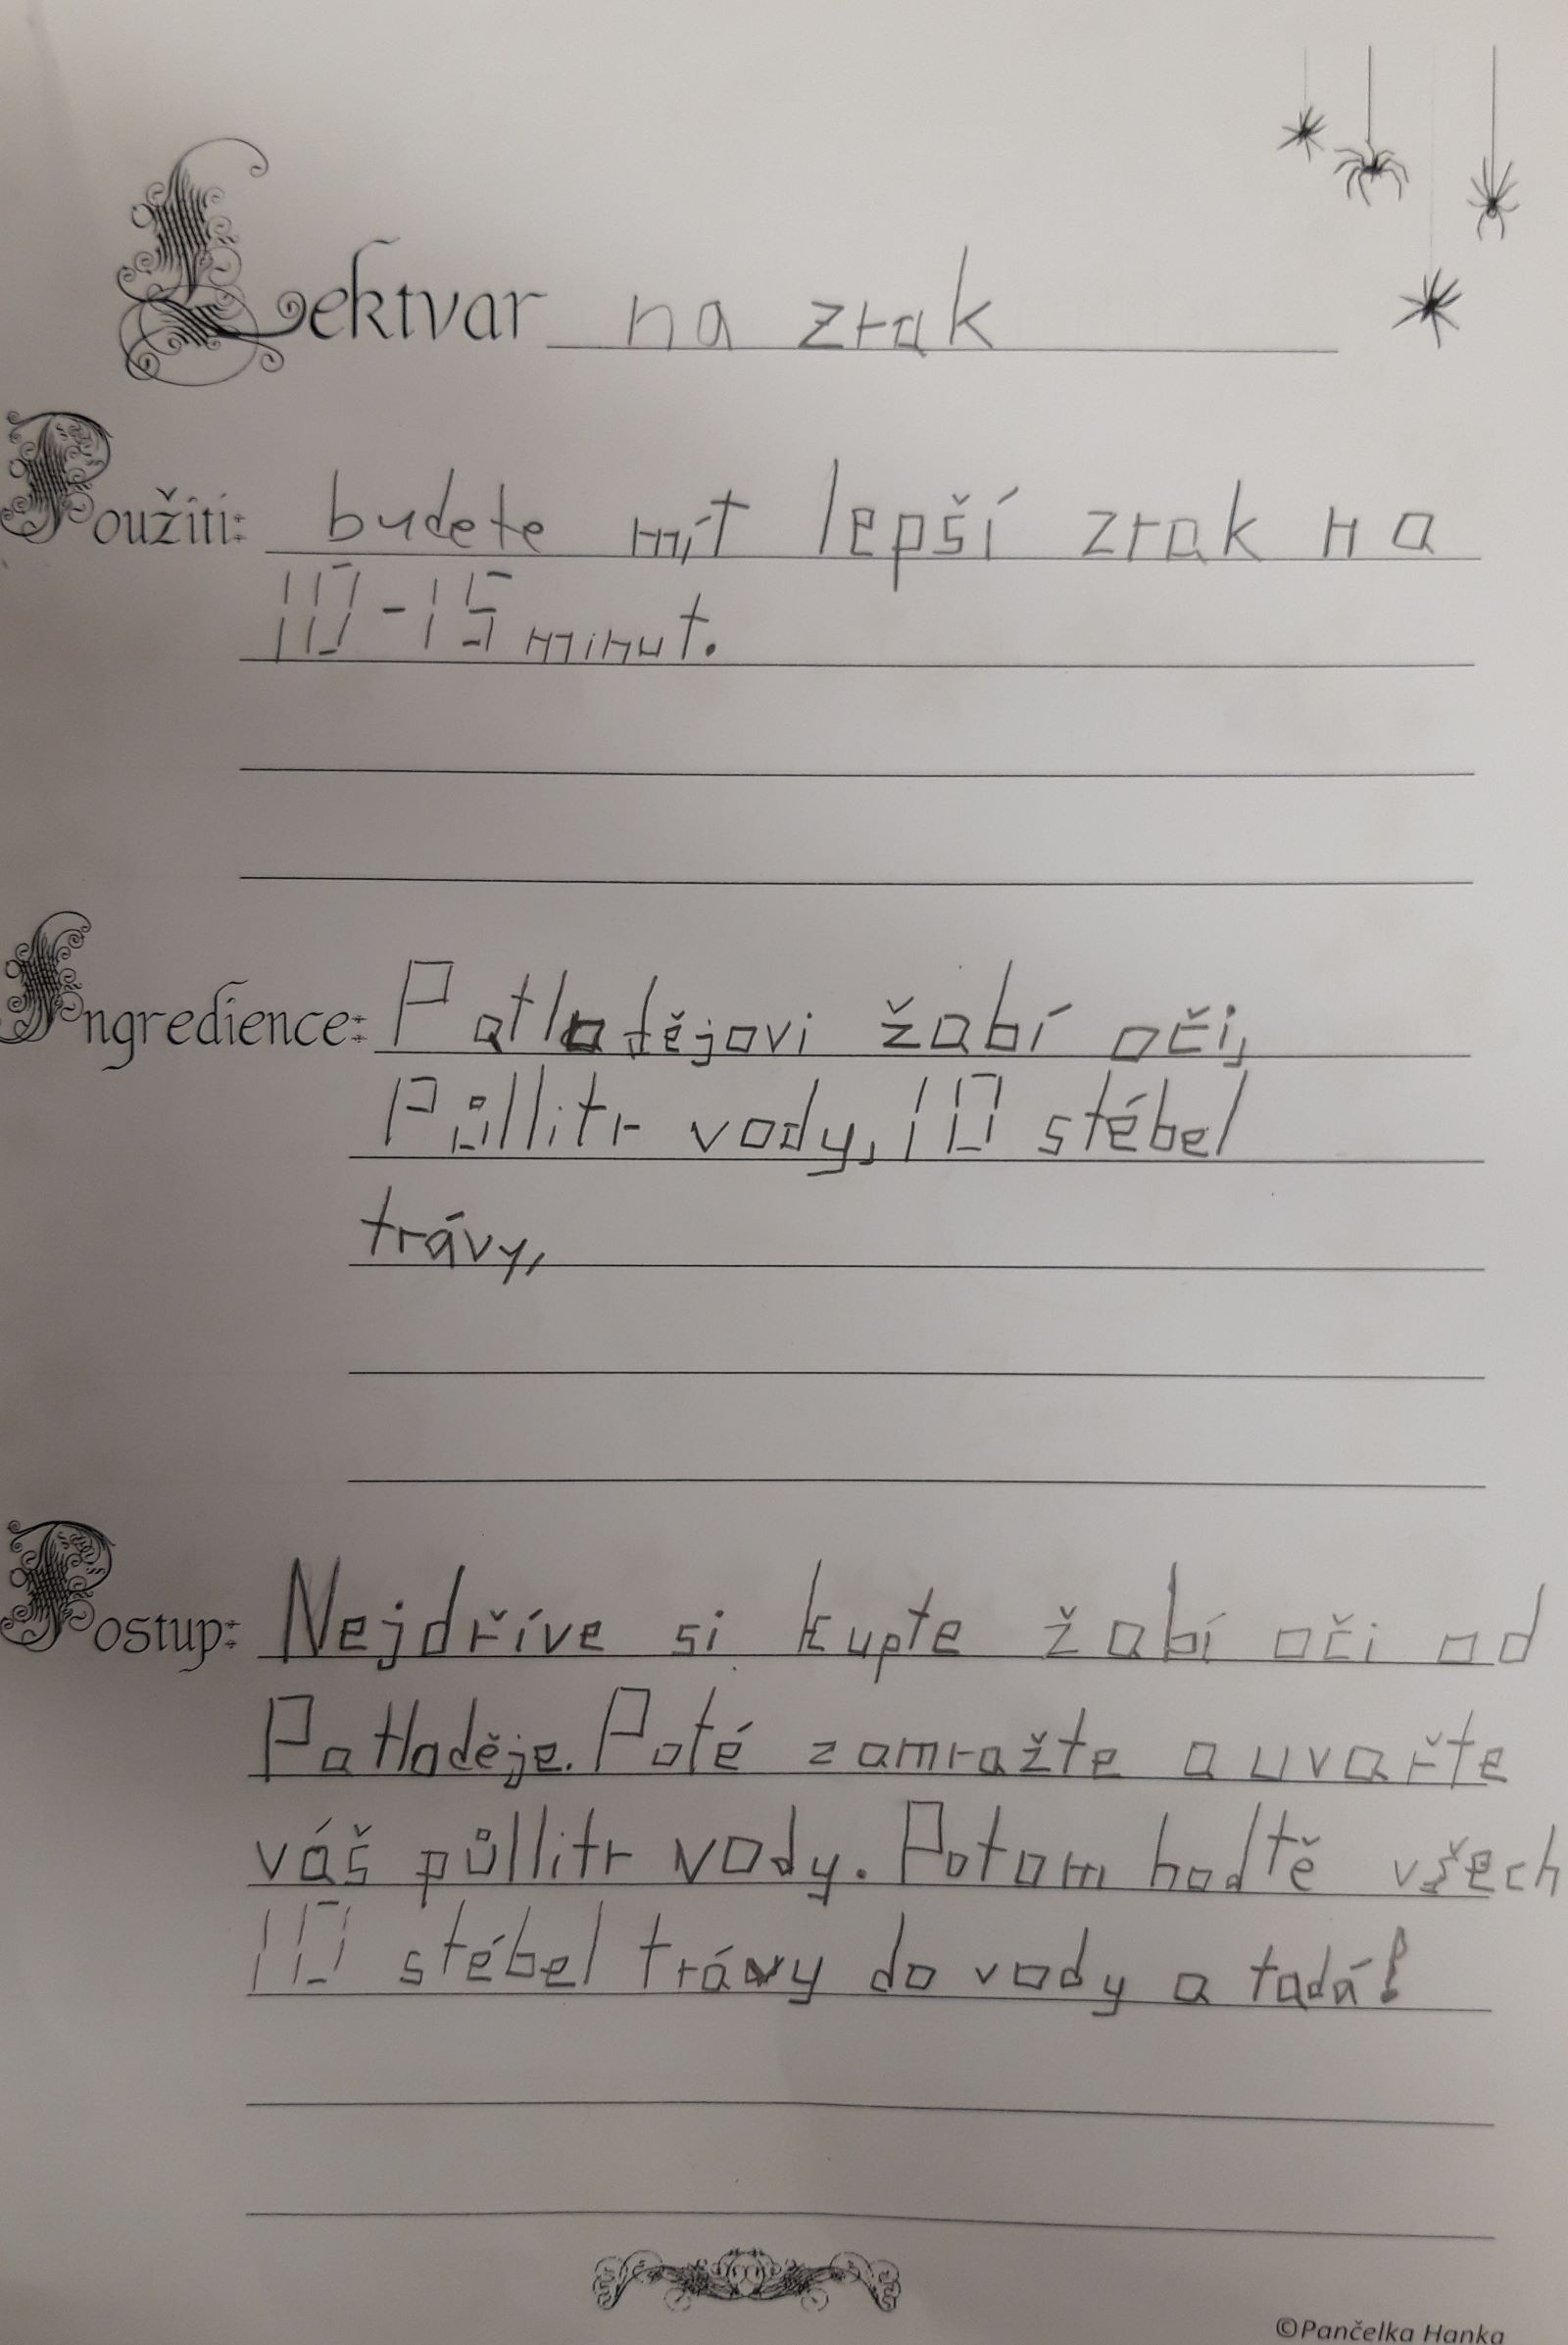 Lektvar na zrak
Použití: budete mít lepší zrak na
10-15 minut.
Ingredience: Patlodějovi žabí oči,
Půllitr vody, 10 stébel
trávy,
Postup: Nejdříve si kupte žabí oči od
Patloděje. Poté zamražte a uvařte
váš půllitr vody. Potom hodtě všech
10 stébel trávy do vody a tadá!
©Pančelka Hanka